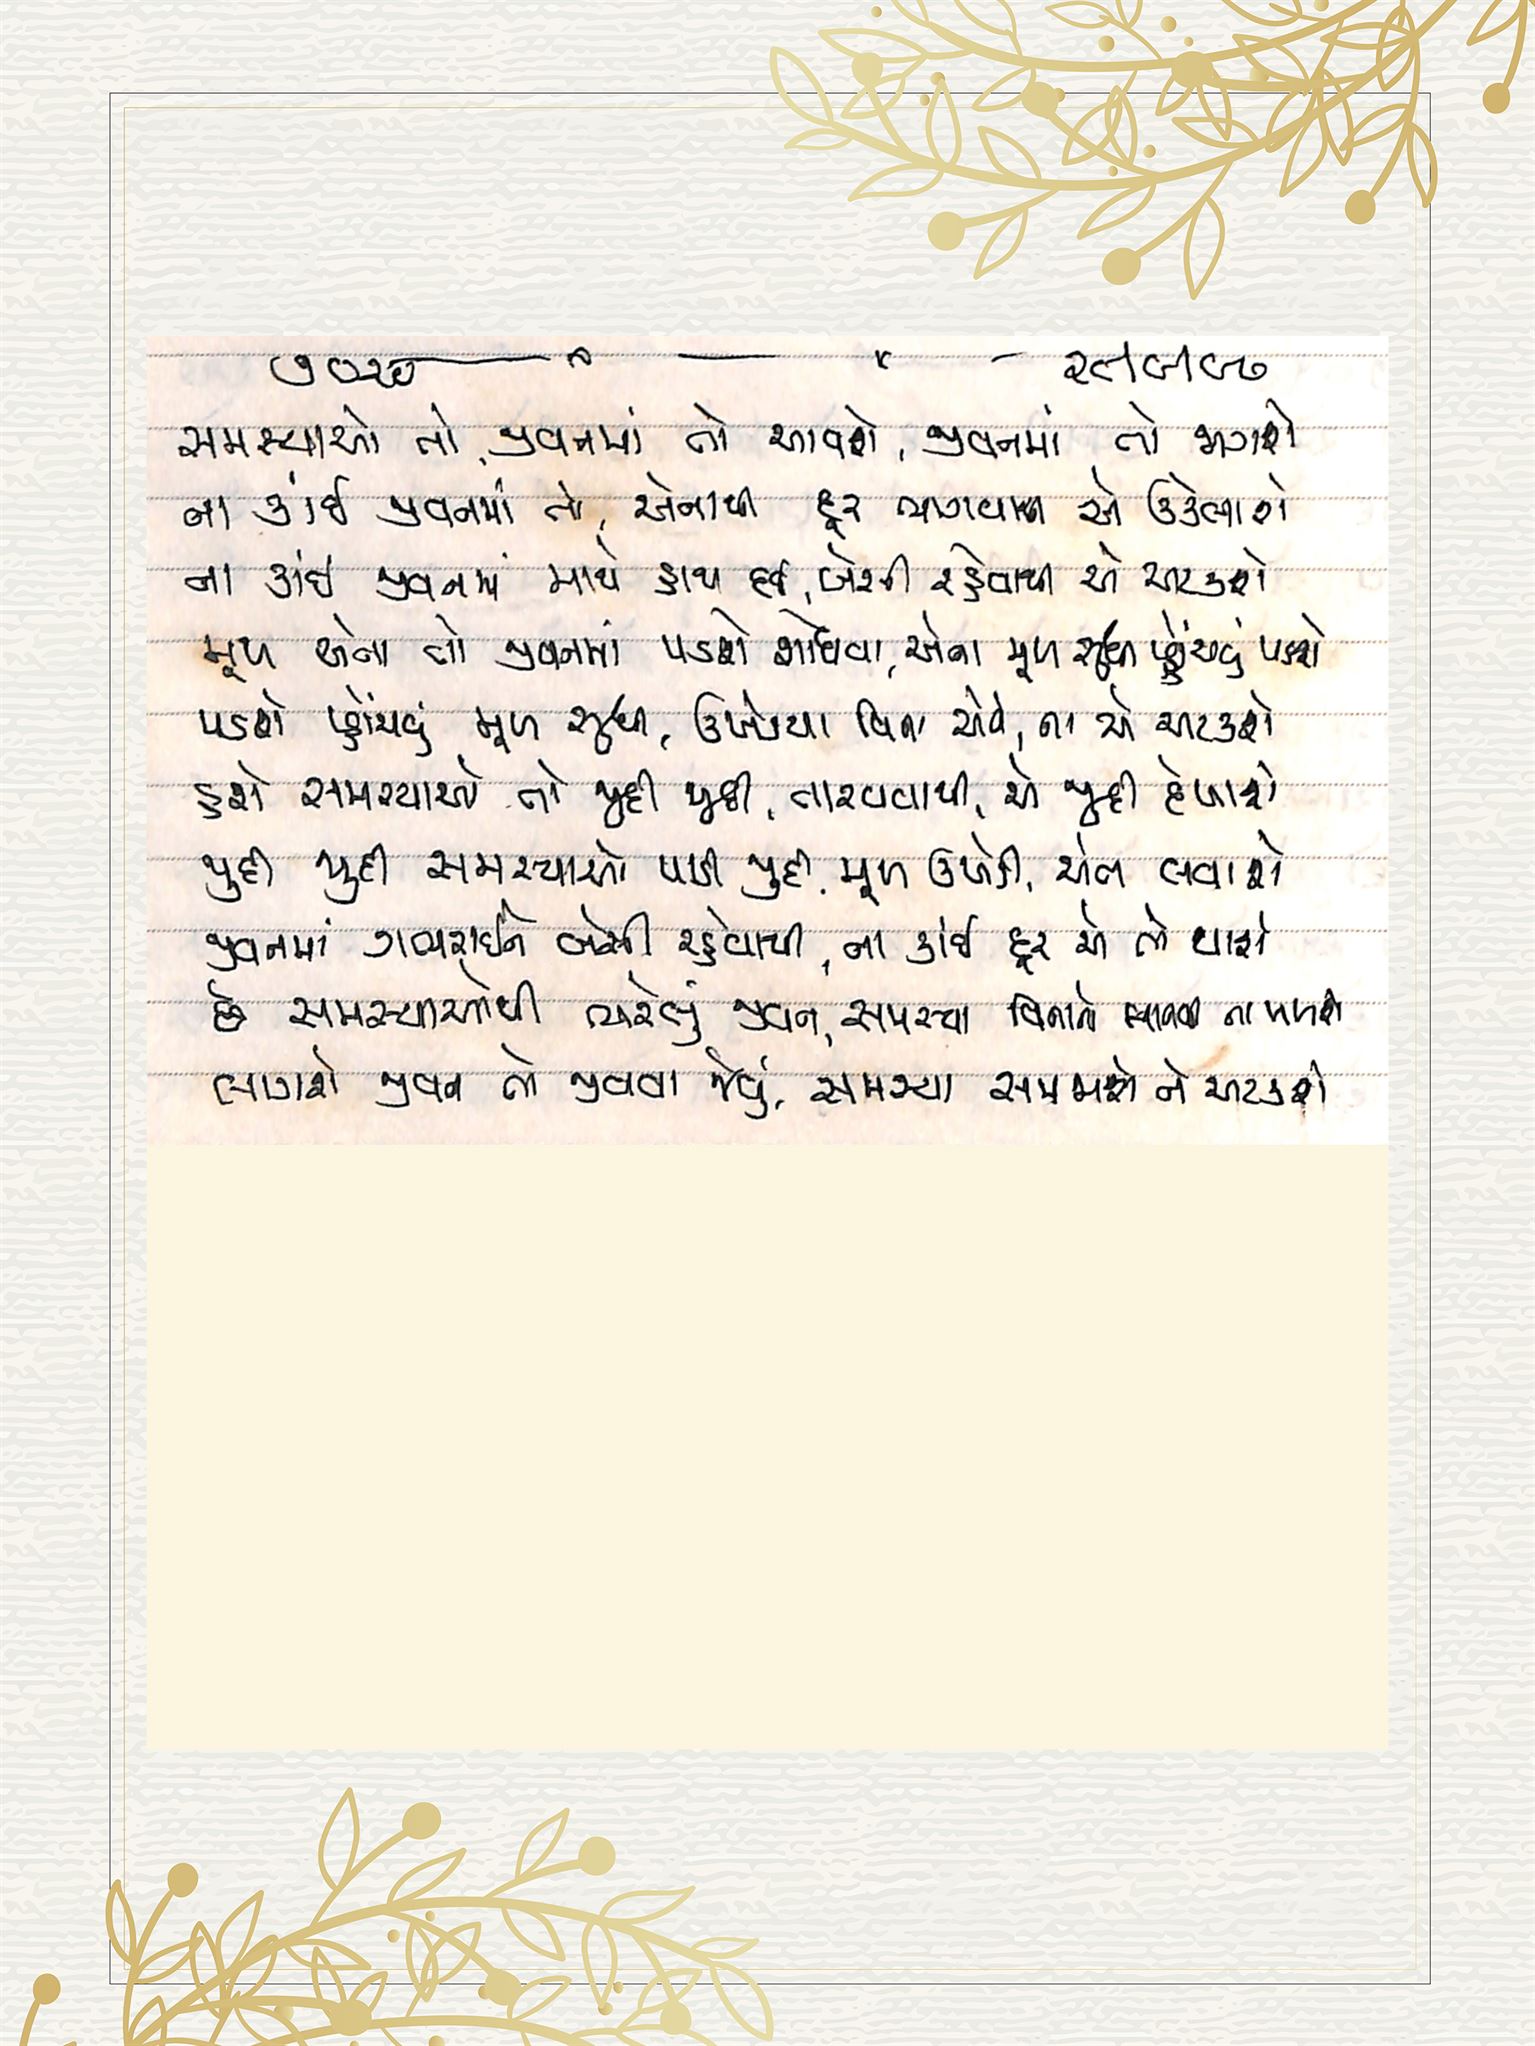 સમસ્યાઓ તો જીવનમાં તો આવશે, જીવનમાં તો જાગશે
ના કાંઈ જીવનમાં તો, એનાથી દૂર ભાગવાથી એ ઉકેલાશે
ના કાંઈ જીવનમાં માથે હાથ દઈ, બેસી રહેવાથી એ અટકશે
મૂળ એના તો જીવનમાં પડશે શોધવા, એના મૂળ સુધી પ્હોંચવું પડશે
પડશે પ્હોંચવું મૂળ સુધી, ઉખેડયા વિના એને, ના એ અટકશે
હશે સમસ્યાઓ તો જુદી જુદી, તારવવાથી, એ જુદી દેખાશે
જુદી જુદી સમસ્યાઓ પાડી જુદી, મૂળ ઉખેડી, એને લવાશે
જીવનમાં ગભરાઈને બેસી રહેવાથી, ના કાંઈ દૂર એ તો થાશે
છે સમસ્યાઓથી ભરેલું જીવન, સમસ્યા વિનાનો માનવી ના મળશે
લાગશે જીવન તો જીવવા જેવું, સમસ્યા સમજાશે ને અટકશે